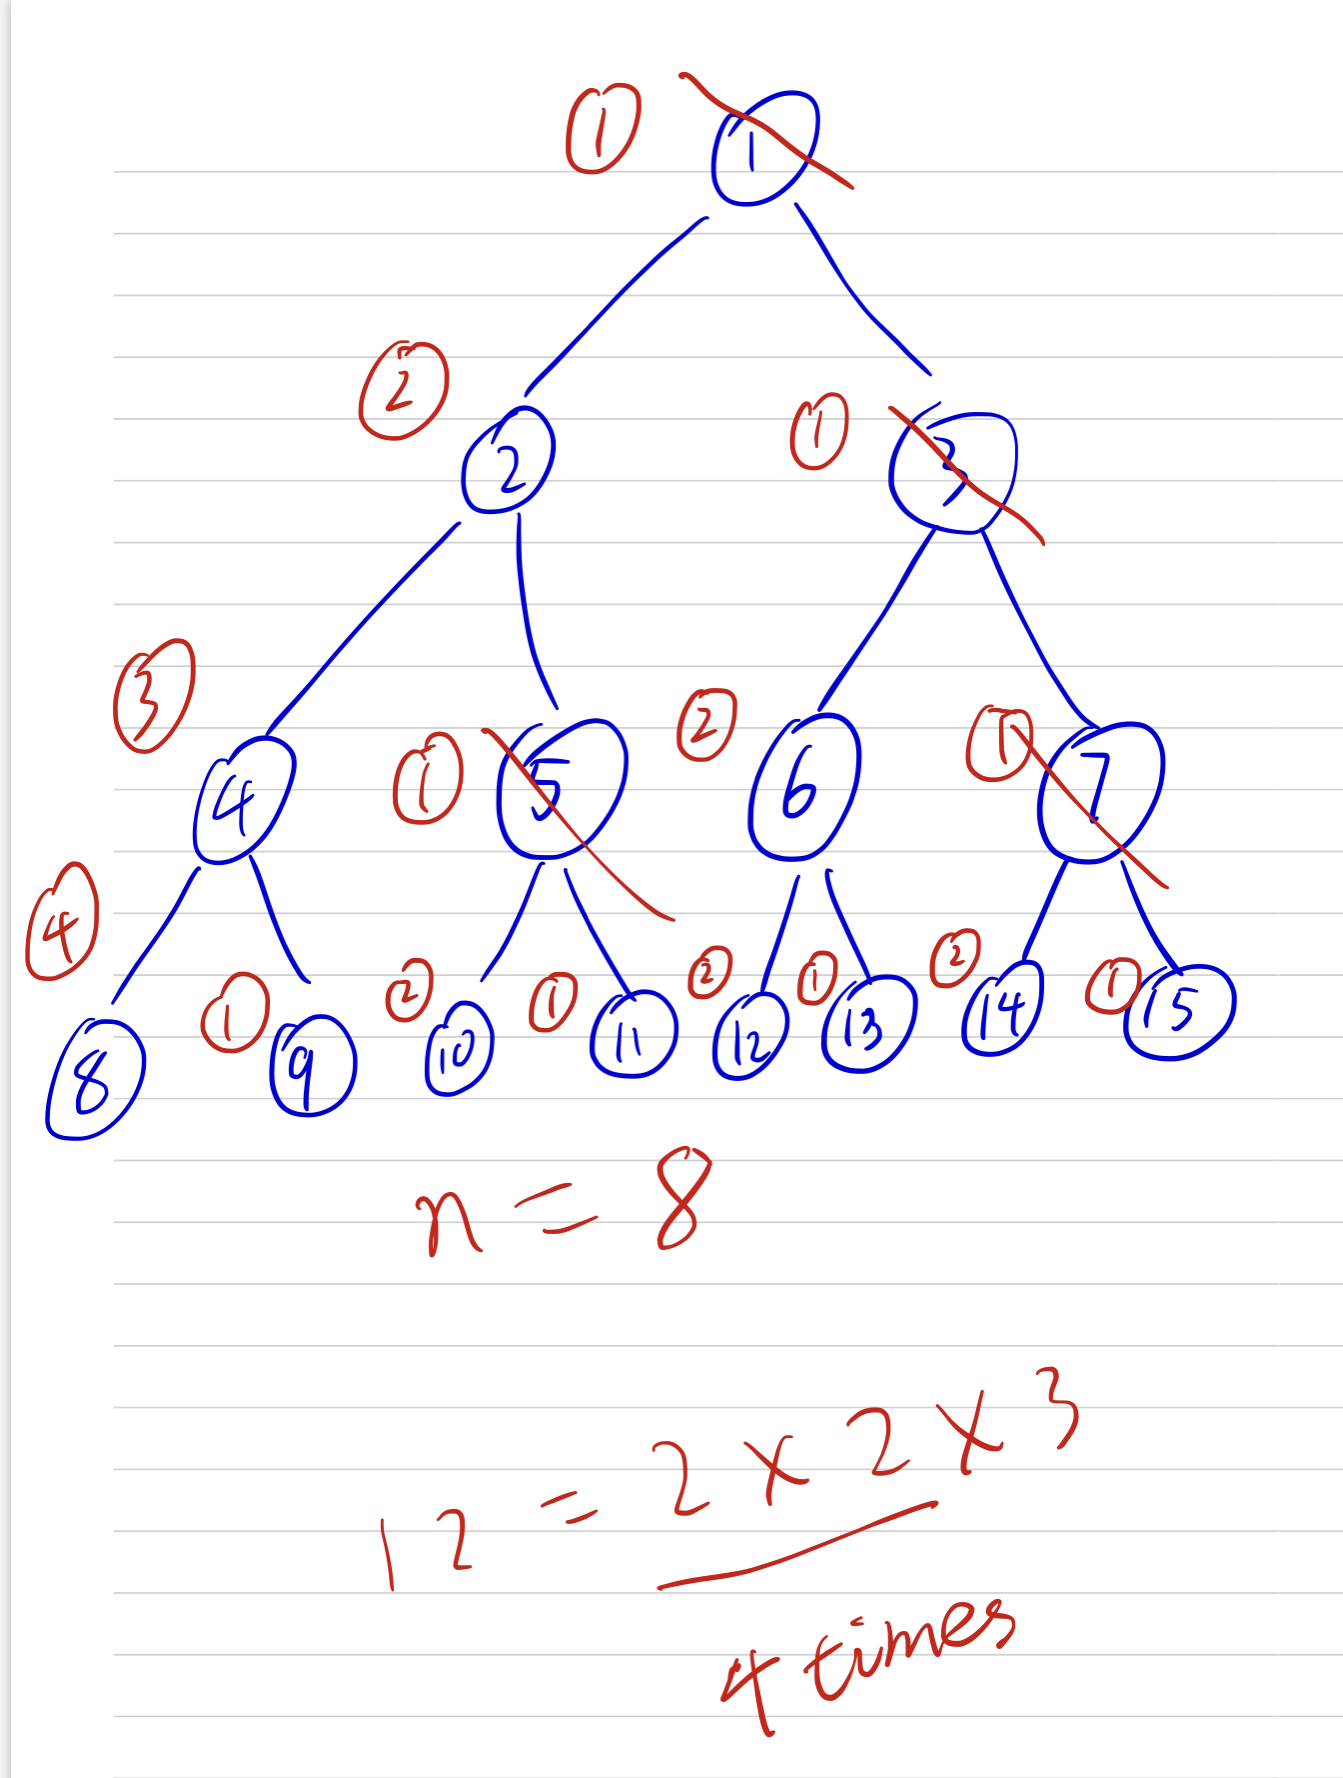 ① 1
② 2 ① 3
③ 4 ① 5 ② 6 ① 7
④ 8 ① 9 ② 10 ① 11 ② 12 ① 13 ② 14 ① 15
n = 8
12 = 2 x 2 x 3
4 times